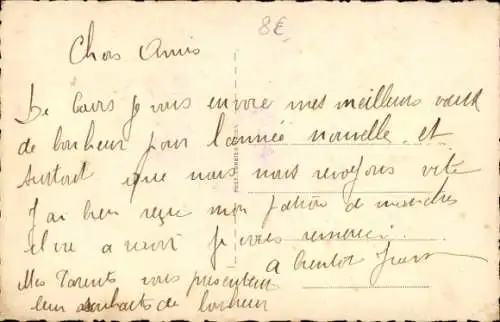 8€
Chers Amis
De Cairs je vous envoie mes meilleurs vœux
de bonheur pour l'année nouvelle et
surtout que nous nous revoyons vite
J'ai bien reçu mon
je vous remerci.
Mes Parents vous présentent a bientot
leur souhaits de bonheur